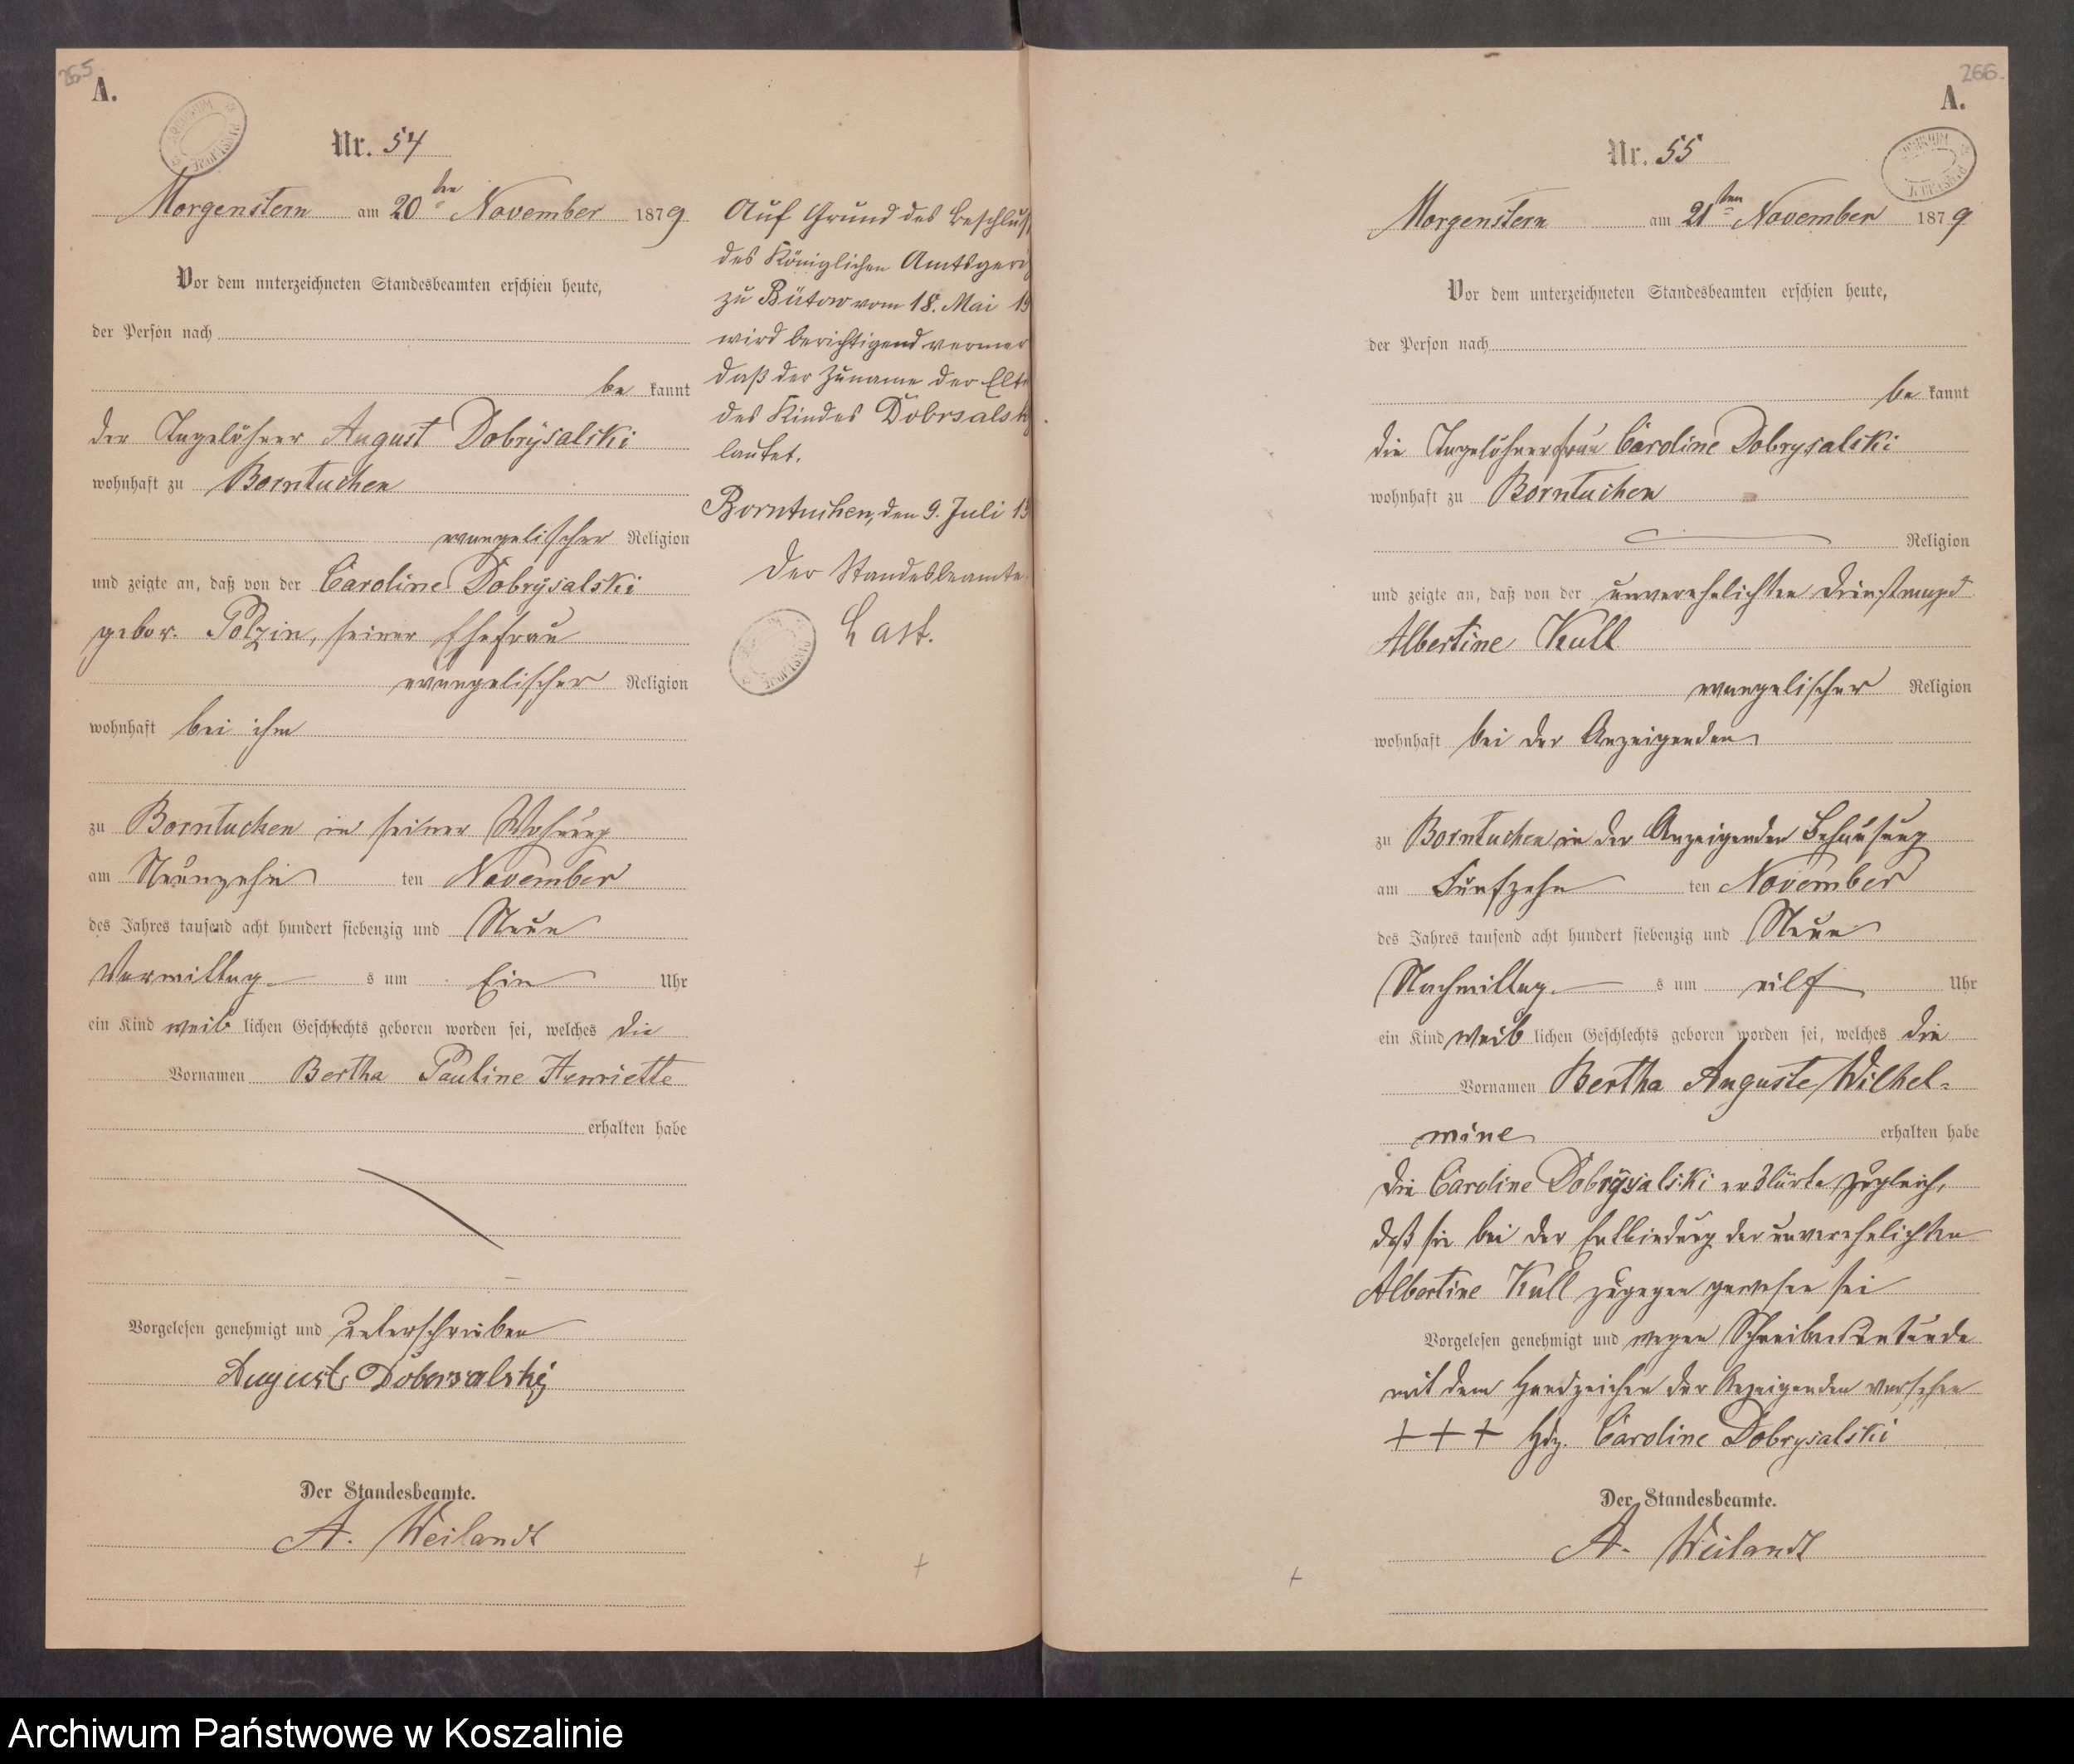 265
A.
Nr. 54
Morgenstern am 20ten November 1879
Vor dem unterzeichneten Standesbeamten erschien heute,
der Person nach
be kannt
der Tagelöhner August Dobrÿsalski
wohnhaft zu Borntuchen
evangelischer Religion
und zeigte an, daß von der Caroline Dobrÿsalski
gebor. Polzin, seiner Ehefrau
evangelischer Religion
wohnhaft bei ihm
zu Borntuchen in seiner Wohnung
am Neunzehn ten November
des Jahres tausend acht hundert siebenzig und Neun
Vormittag s um Ein Uhr
ein Kind weib lichen Geschlechts geboren worden sei, welches die
Vornamen Bertha Pauline Henriette
erhalten habe
Vorgelesen genehmigt und unterschrieben
August Dobrsalski
Der Standesbeamte.
A. Weilandt
Auf Grund des Beschlus
des Königlichen Amtsger
zu Bütow vom 18. Mai 19
wird berichtigend vermer
daß der Zuname der Elt
des Kindes Dobrsalsk
lautet.
Borntuchen, den 9. Juli 19
Der Standesbeamte.
Last.
266.
A.
Nr. 55
Morgenstern am 21ten November 1879
Vor dem unterzeichneten Standesbeamten erschien heute,
der Person nach
be kannt
die Tagelöhnerfrau Caroline Dobrysalski
wohnhaft zu Borntuchen
Religion
und zeigte an, daß von der unverehelichten Dienstmagd
Albertine Kull
evangelischer Religion
wohnhaft bei der Anzeigenden
zu Borntuchen in der Anzeigenden Behausung
am Fünfzehn ten November
des Jahres tausend acht hundert siebenzig und Neun
Nachmittag s um eilf Uhr
ein Kind weib lichen Geschlechts geboren worden sei, welches die
Vornamen Bertha Auguste Wilhel-
mine erhalten habe
Die Caroline Dobrÿsalski erklärte zugleich,
daß sie bei der Entbindung der unverehelichten
Albertine Kull zugegen gewesen sei
Vorgelesen genehmigt und wegen Schreibensunkunde
mit dem Handzeichen der Anzeigenden versehen
+ + + Hdz. Caroline Dobrysalski
Der Standesbeamte.
A. Weilandt
Archiwum Państwowe w Koszalinie